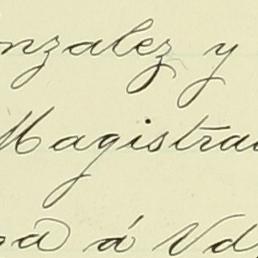 onzalez y
Magistra
a á Vd